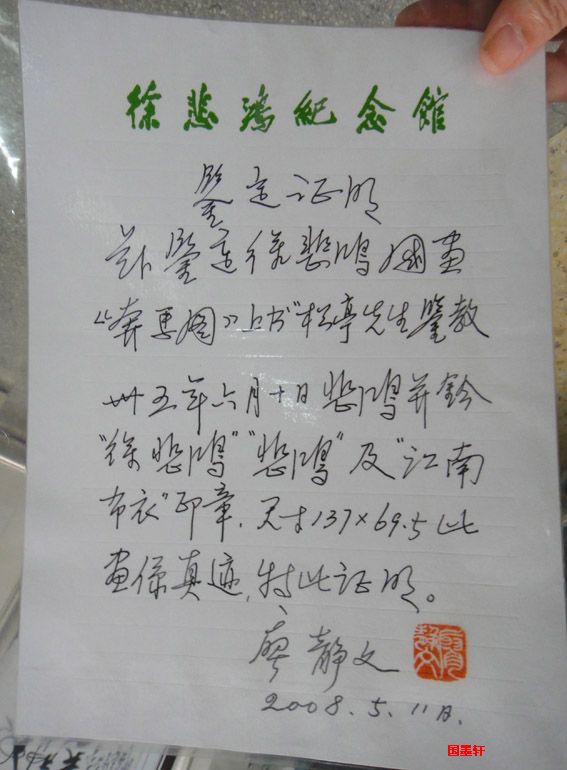 徐悲鸿紀念館
鉴定证明
兹鉴定徐悲鸿国画
《奔马图》上书"松亭先生鉴教
卅五年六月十日悲鸿并钤
"徐悲鸿""悲鸿"及"江南
布衣"印章.尺寸137×69.5此
画系真迹,特此证明。
廖静文
2008.5.11日.
国墨轩